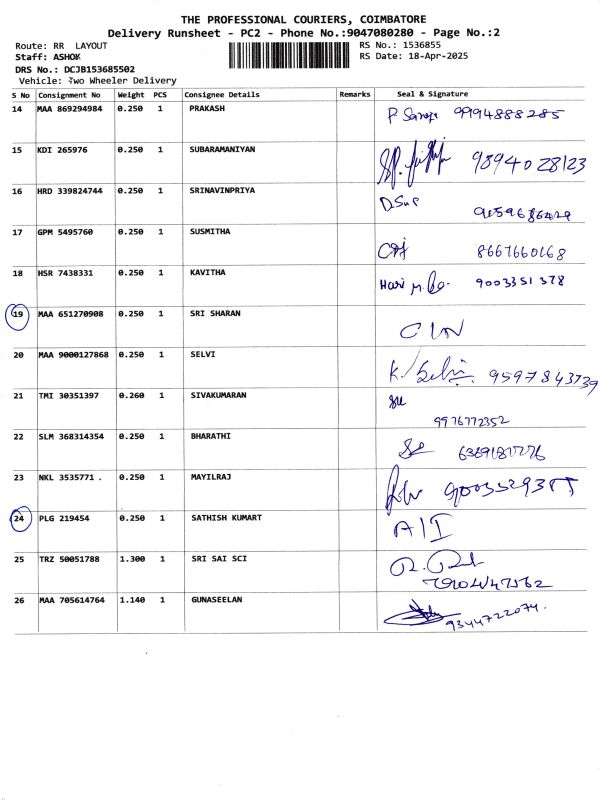 THE PROFESSIONAL COURIERS, COIMBATORE
Delivery Runsheet - PC2 - Phone No.:9047080280 - Page No.:2
Route: RR LAYOUT RS No.: 1536855
Staff: ASHOK RS Date: 18-Apr-2025
DRS No.: DCJB153685502
Vehicle: Two Wheeler Delivery
S No Consignment No Weight PCS Consignee Details Remarks Seal & Signature
14 MAA 869294984 0.250 1 PRAKASH 9994888285
15 KDI 265976 0.250 1 SUBARAMANIYAN 98940 28123
16 HRD 339824744 0.250 1 SRINAVINPRIYA
17 GPM 5495760 0.250 1 SUSMITHA 8667660168
18 HSR 7438331 0.250 1 KAVITHA Hari 9003351378
19 MAA 651270908 0.250 1 SRI SHARAN
20 MAA 9000127868 0.250 1 SELVI K. Selvi 9597843739
21 TMI 30351397 0.260 1 SIVAKUMARAN 9976772352
22 SLM 368314354 0.250 1 BHARATHI
23 NKL 3535771 . 0.250 1 MAYILRAJ
24 PLG 219454 0.250 1 SATHISH KUMART A/I
25 TRZ 50051788 1.300 1 SRI SAI SCI
26 MAA 705614764 1.140 1 GUNASEELAN 9344722074.